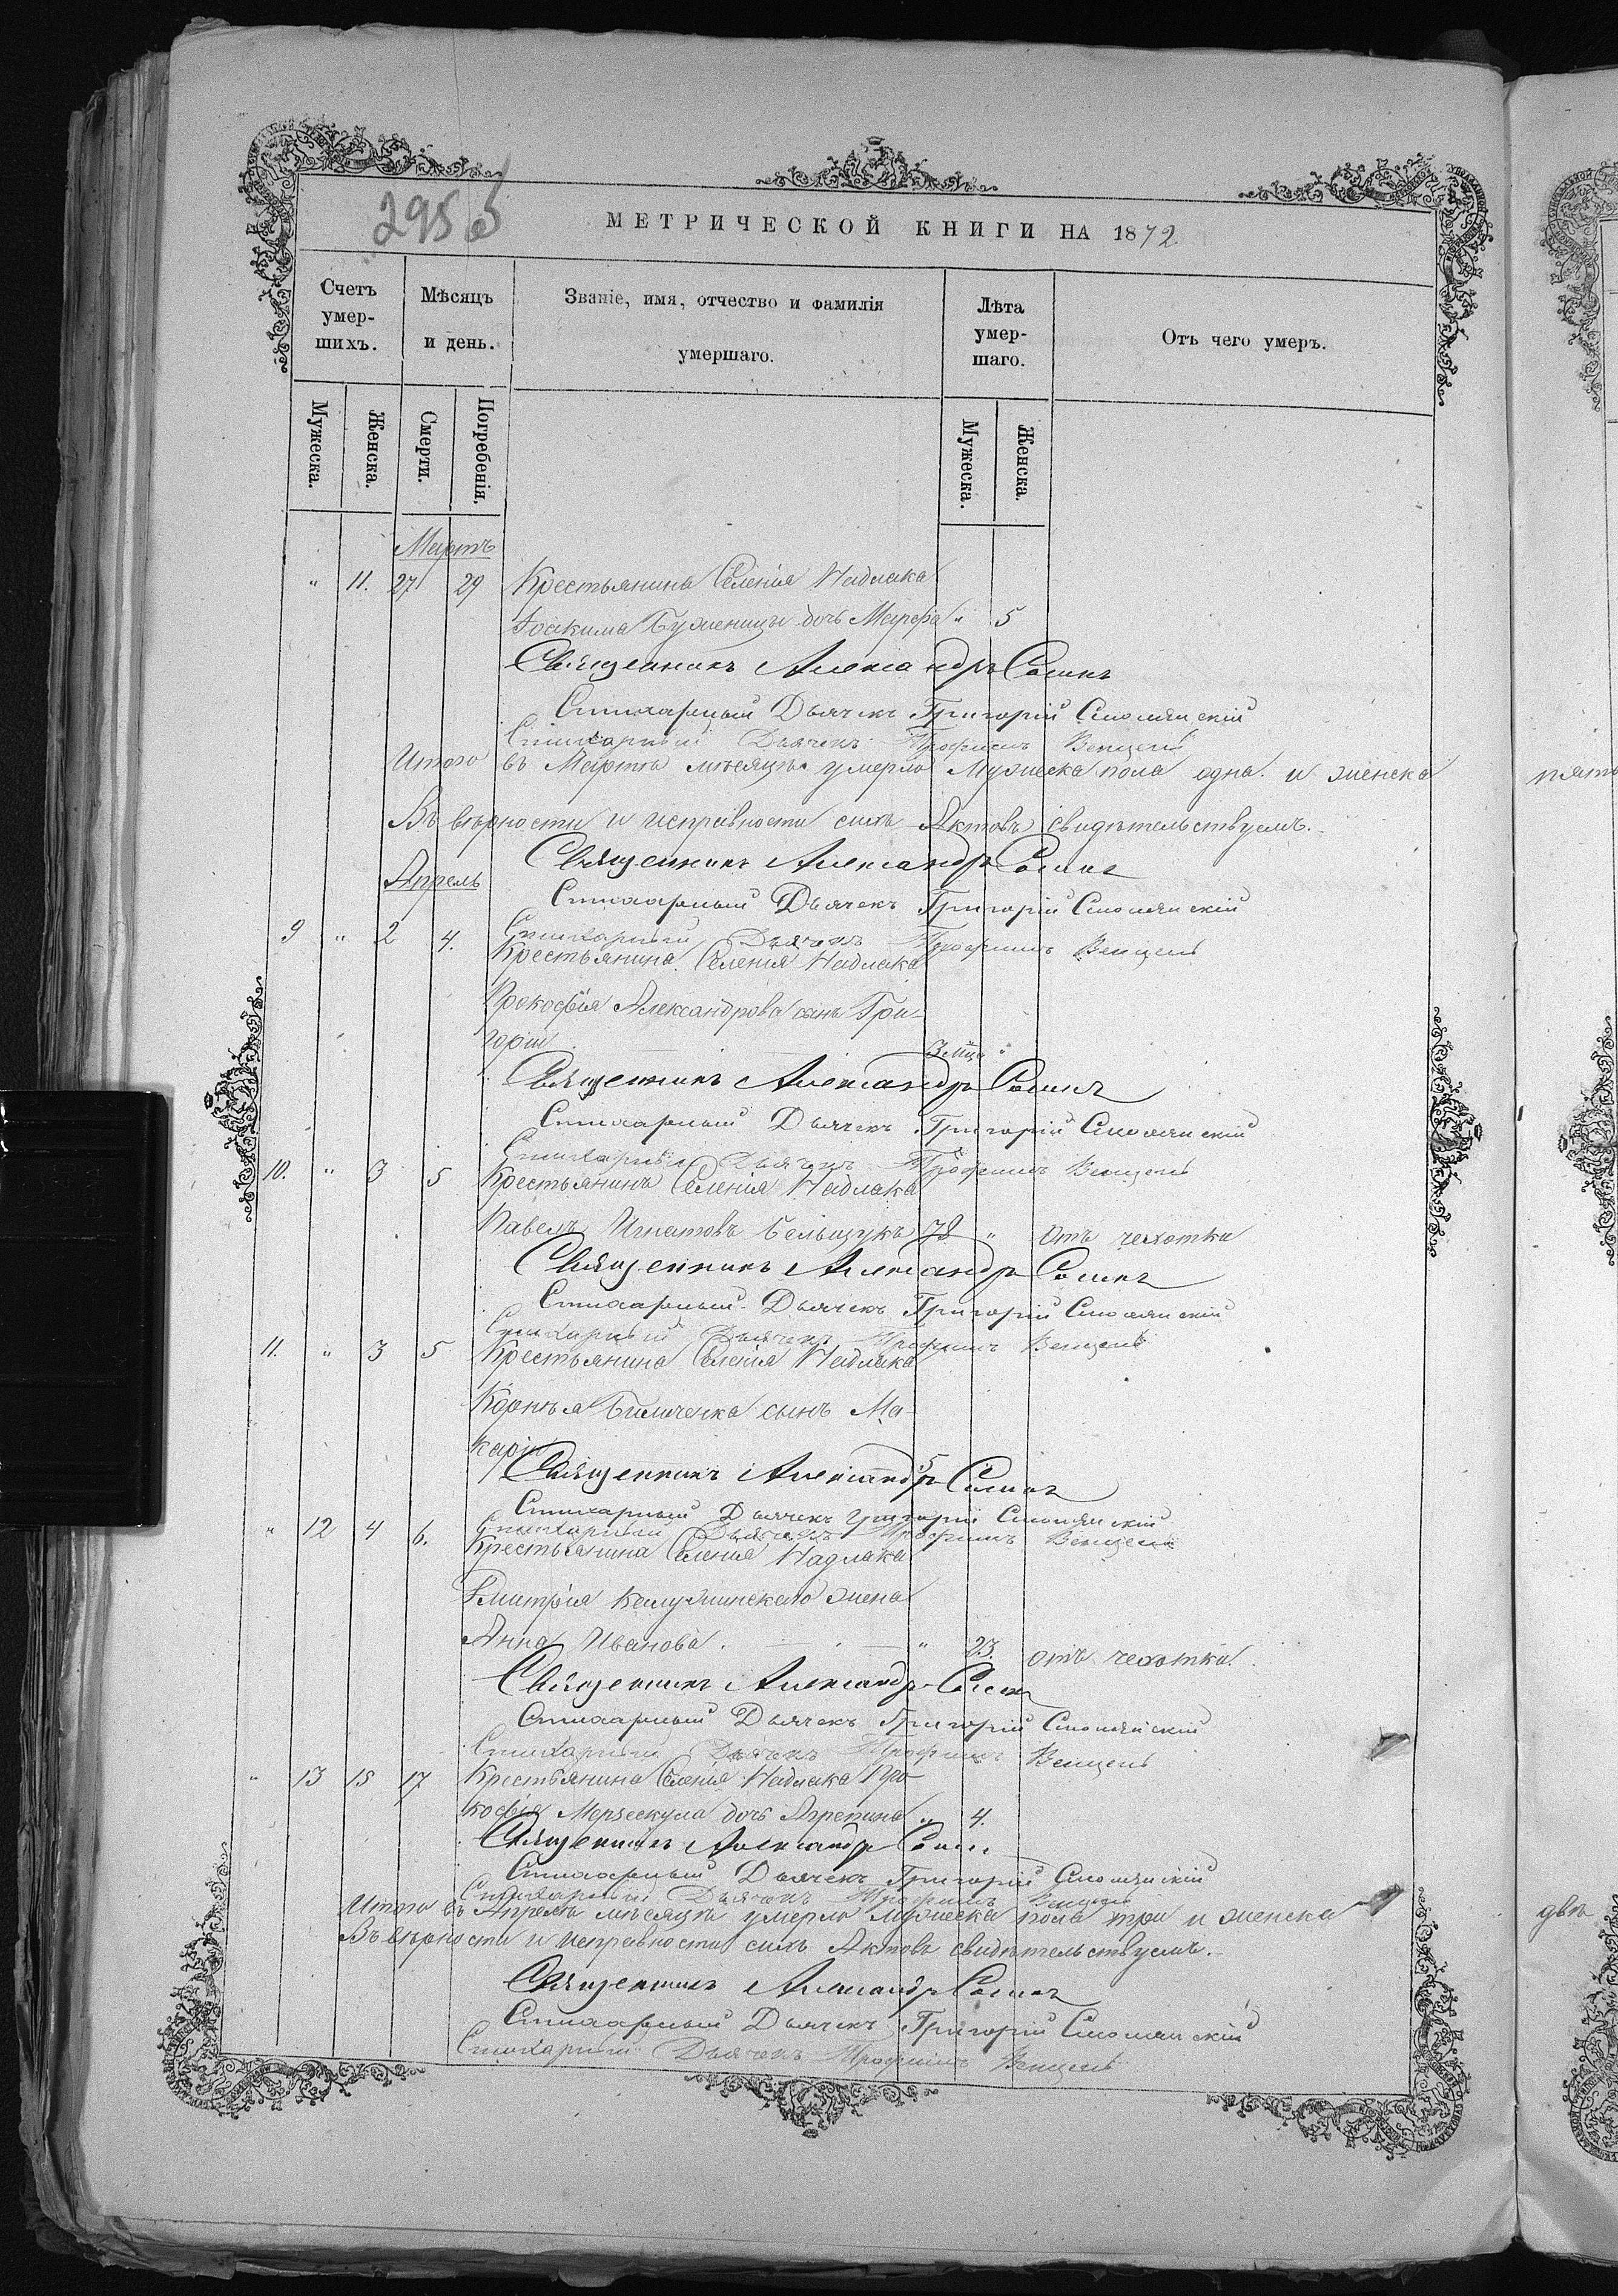 295 об
МЕТРИЧЕСКОЙ КНИГИ НА 1872
Счетъ умер-шихъ.
Мѣсяцъ и день.
Званіе, имя, отчество и фамилія умершаго.
Лѣта умер-шаго.
Отъ чего умеръ.
Мужеска.
Женска.
Смерти.
Погребенія.
Мужеска.
Женска.
Мартъ
" 11. 27 29 Крестьянина Селенія Надлака
Іоакима дочь Марфа " 5
Священникъ Александръ
Стихарный Дьячекъ Григорій Смолянскій
Стихарный Дьячекъ Трофимъ Венцель
Итого въ Мартѣ мѣсяцѣ умерло Мужеска пола одна и женска пять
Въ вѣрности и исправности сихъ Актовъ свидѣтельствуемъ.
Священникъ Александръ
Апрель
Стихарный Дьячекъ Григорій Смолянскій
Стихарный Дьячекъ Трофимъ Венцель
9 " 2 4. Крестьянина Селенія Надлака
Прокофія Александрова сынъ Гри-
горій 3 мца "
Священникъ Александръ
Стихарный Дьячекъ Григорій Смолянскій
Стихарный Дьячекъ Трофимъ Венцель
10. " 3 5 Крестьянинъ Селенія Надлака
Павелъ Игнатовъ 78 " отъ чехотки
Священникъ Александръ
Стихарный Дьячекъ Григорій Смолянскій
Стихарный Дьячекъ Трофимъ Венцель
11. " 3 5 Крестьянина Селенія Надлака
Корнѣя Биличенка сынъ Ма-
карій 5
Священникъ Александръ
Стихарный Дьячекъ Григорій Смолянскій
Стихарный Дьячекъ Трофимъ Венцель
" 12 4 6. Крестьянина Селенія Надлака
Дмитрія жена
Анна Иванова " 23. отъ чехотки
Священникъ Александръ
Стихарный Дьячекъ Григорій Смолянскій
Стихарный Дьячекъ Трофимъ Венцель
" 13 15 17 Крестьянина Селенія Надлака Про-
кофія дочь Агрепина " 4.
Священникъ Александръ
Стихарный Дьячекъ Григорій Смолянскій
Стихарный Дьячекъ Трофимъ Венцель
Итого въ Апрелѣ мѣсяцѣ умерло мужеска пола три и женска двѣ
Въ вѣрности и исправности сихъ Актовъ свидѣтельствуемъ.
Священникъ Александръ
Стихарный Дьячекъ Григорій Смолянскій
Стихарный Дьячекъ Трофимъ Венцель